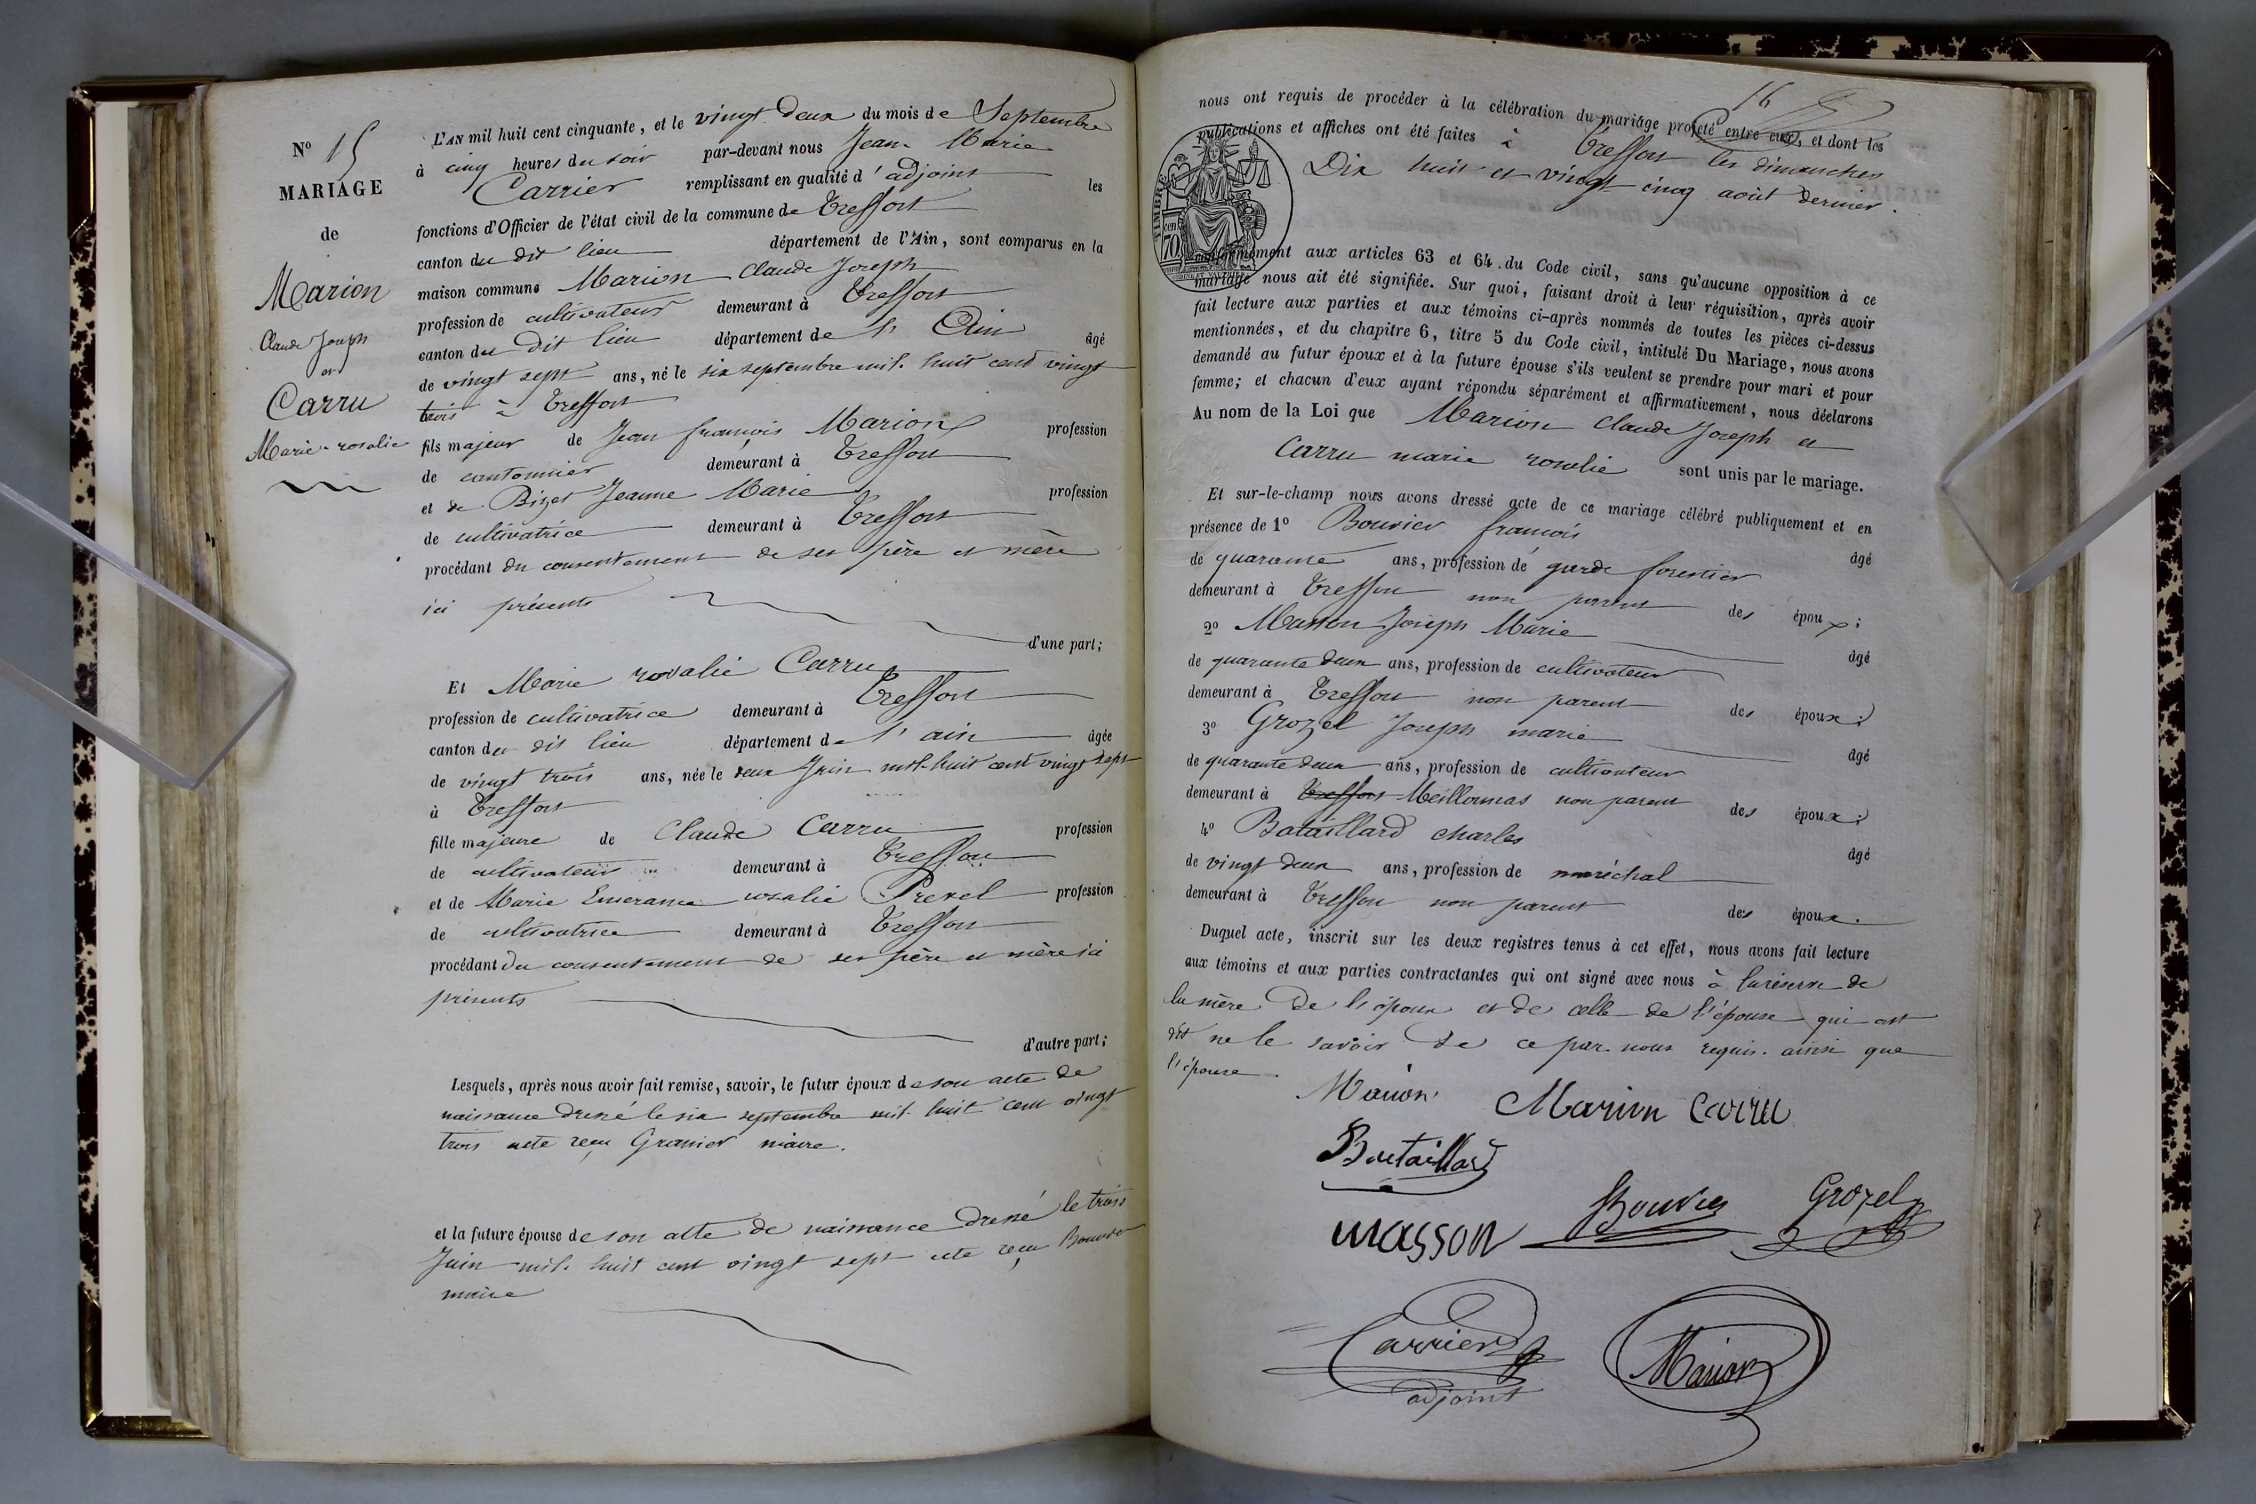 N° 15
MARIAGE
de
Marion
Claude Joseph
et
Carru
Marie-rosalie
L'AN mil huit cent cinquante, et le vingt deux du mois de Septembre
à cinq heures du soir par-devant nous Jean Marie
Carrier remplissant en qualité d'adjoint les
fonctions d'Officier de l'état civil de la commune de Treffort
canton du dit lieu département de l'Ain, sont comparus en la
maison commune Marion Claude Joseph
profession de cultivateur demeurant à Treffort
canton du dit lieu département de l'Ain âgé
de vingt sept ans, né le six septembre mil huit cent vingt
trois à Treffort
fils majeur de Jean françois Marion profession
de cantonnier demeurant à Treffort
et de Bizet Jeanne Marie profession
de cultivatrice demeurant à Treffort
procédant du consentement de ses père et mère
ici présents
d'une part;
Et Marie rosalie Carru
profession de cultivatrice demeurant à Treffort
canton du dit lieu département de l'ain âgée
de vingt trois ans, née le deux Juin mil huit cent vingt sept
à Treffort
fille majeure de Claude Carru profession
de cultivateur demeurant à Treffort
et de Marie rosalie profession
de cultivatrice demeurant à Treffort
procédant du consentement de ses père et mère ici
présents
d'autre part;
Lesquels, après nous avoir fait remise, savoir, le futur époux de son acte de
naissance dressé le six septembre mil huit cent vingt
trois acte reçu maire.
et la future épouse de son acte de naissance dressé le trois
Juin mil huit cent vingt sept acte reçu
maire
16
nous ont requis de procéder à la célébration du mariage projeté entre eux, et dont les
publications et affiches ont été faites à Treffort les dimanches
Dix huit et vingt cinq août dernier.
TIMBRE
70
conformément aux articles 63 et 64 du Code civil, sans qu'aucune opposition à ce
mariage nous ait été signifiée. Sur quoi, faisant droit à leur réquisition, après avoir
fait lecture aux parties et aux témoins ci-après nommés de toutes les pièces ci-dessus
mentionnées, et du chapitre 6, titre 5 du Code civil, intitulé Du Mariage, nous avons
demandé au futur époux et à la future épouse s'ils veulent se prendre pour mari et pour
femme; et chacun d'eux ayant répondu séparément et affirmativement, nous déclarons
Au nom de la Loi que Marion Claude Joseph et
Carru marie rosalie sont unis par le mariage.
Et sur-le-champ nous avons dressé acte de ce mariage célébré publiquement et en
présence de 1° Bouvier francois âgé
de quarante ans, profession de garde forestier
demeurant à Treffort non parent des époux;
2° Masson Joseph Marie âgé
de quarante deux ans, profession de cultivateur
demeurant à Treffort non parent des époux;
3° Grozel Joseph marie âgé
de quarante deux ans, profession de cultivateur
demeurant à Treffort Meillonnas non parent des époux;
4° Bataillard charles âgé
de vingt deux ans, profession de maréchal
demeurant à Treffort non parent des époux.
Duquel acte, inscrit sur les deux registres tenus à cet effet, nous avons fait lecture
aux témoins et aux parties contractantes qui ont signé avec nous à la réserve de
la mère de l'époux et de celle de l'épouse qui ont
dit ne le savoir de ce par nous requis. ainsi que
l'épouse.
Marion Marion Carru
Bataillard
masson Bouvier Grozel
Carrier Marion
adjoint